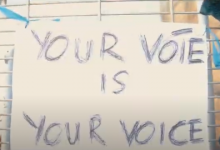 YOUR VOTE
IS
YOUR VOICE